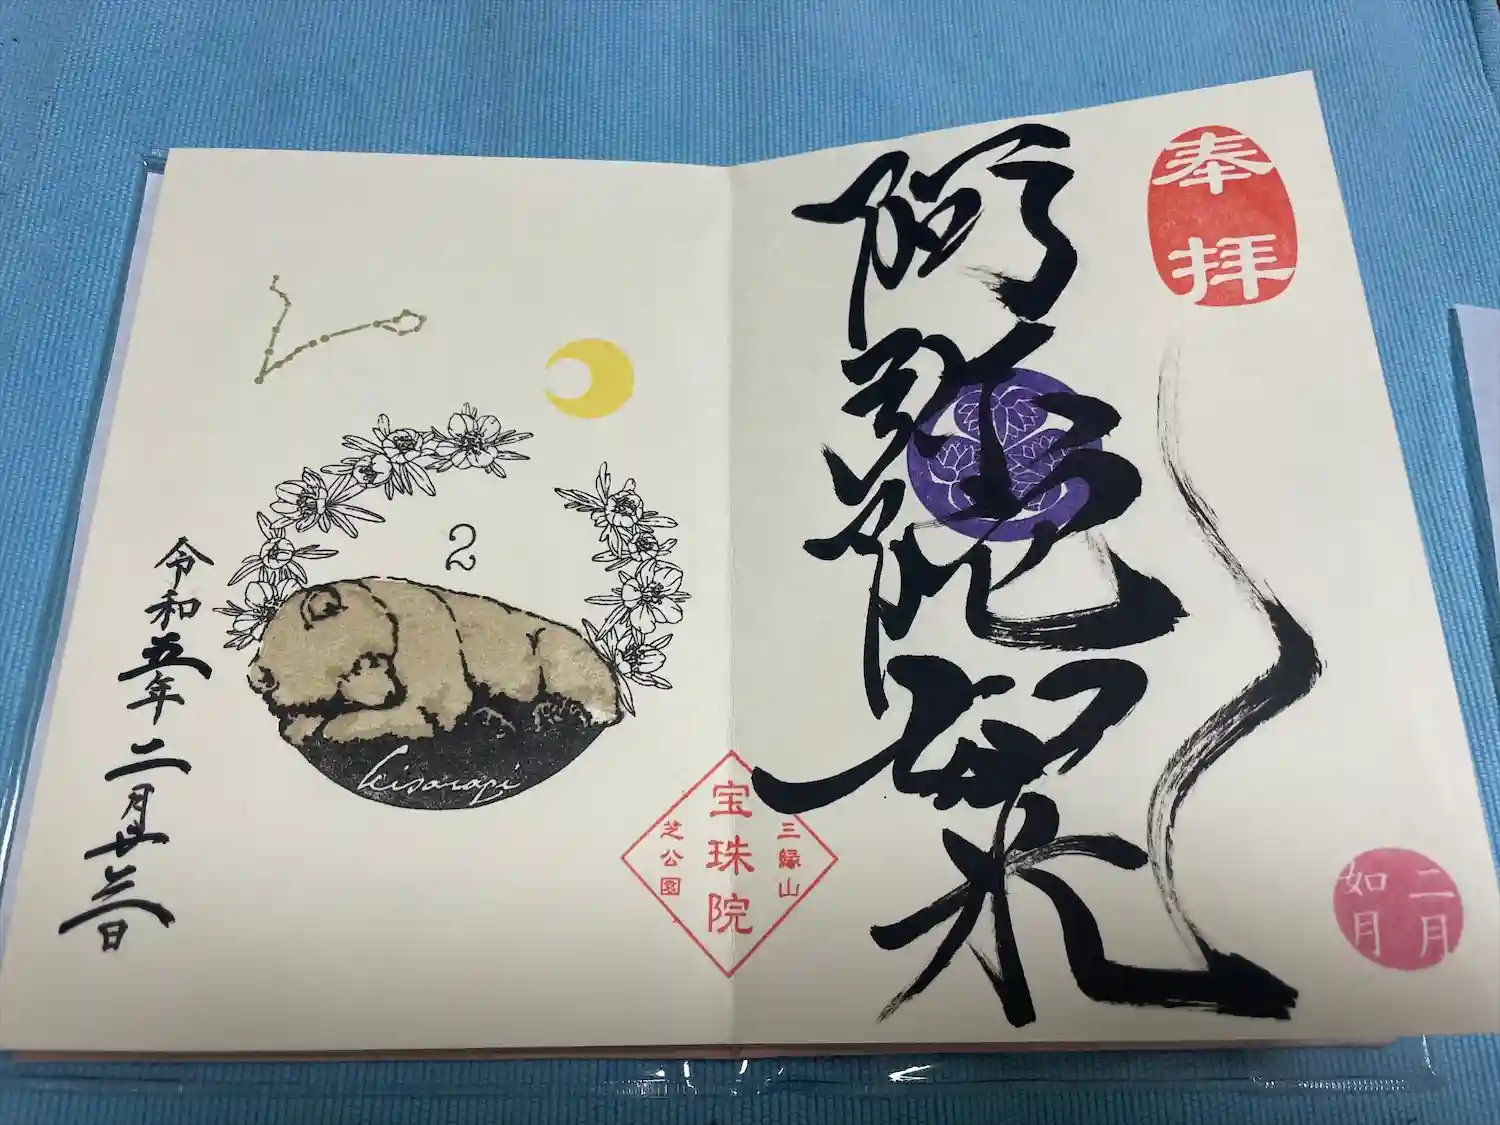 奉拝
阿弥陀如来
二月
如月
三縁山
宝珠院
芝公園
2
kisaragi
令和五年二月廿三日